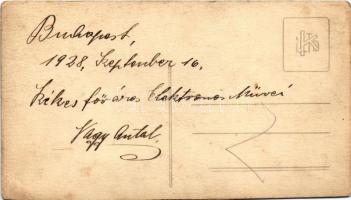 Budapest,
1928, Szeptember 16.
Székes főváros Elektromos Művei
Nagy Antal